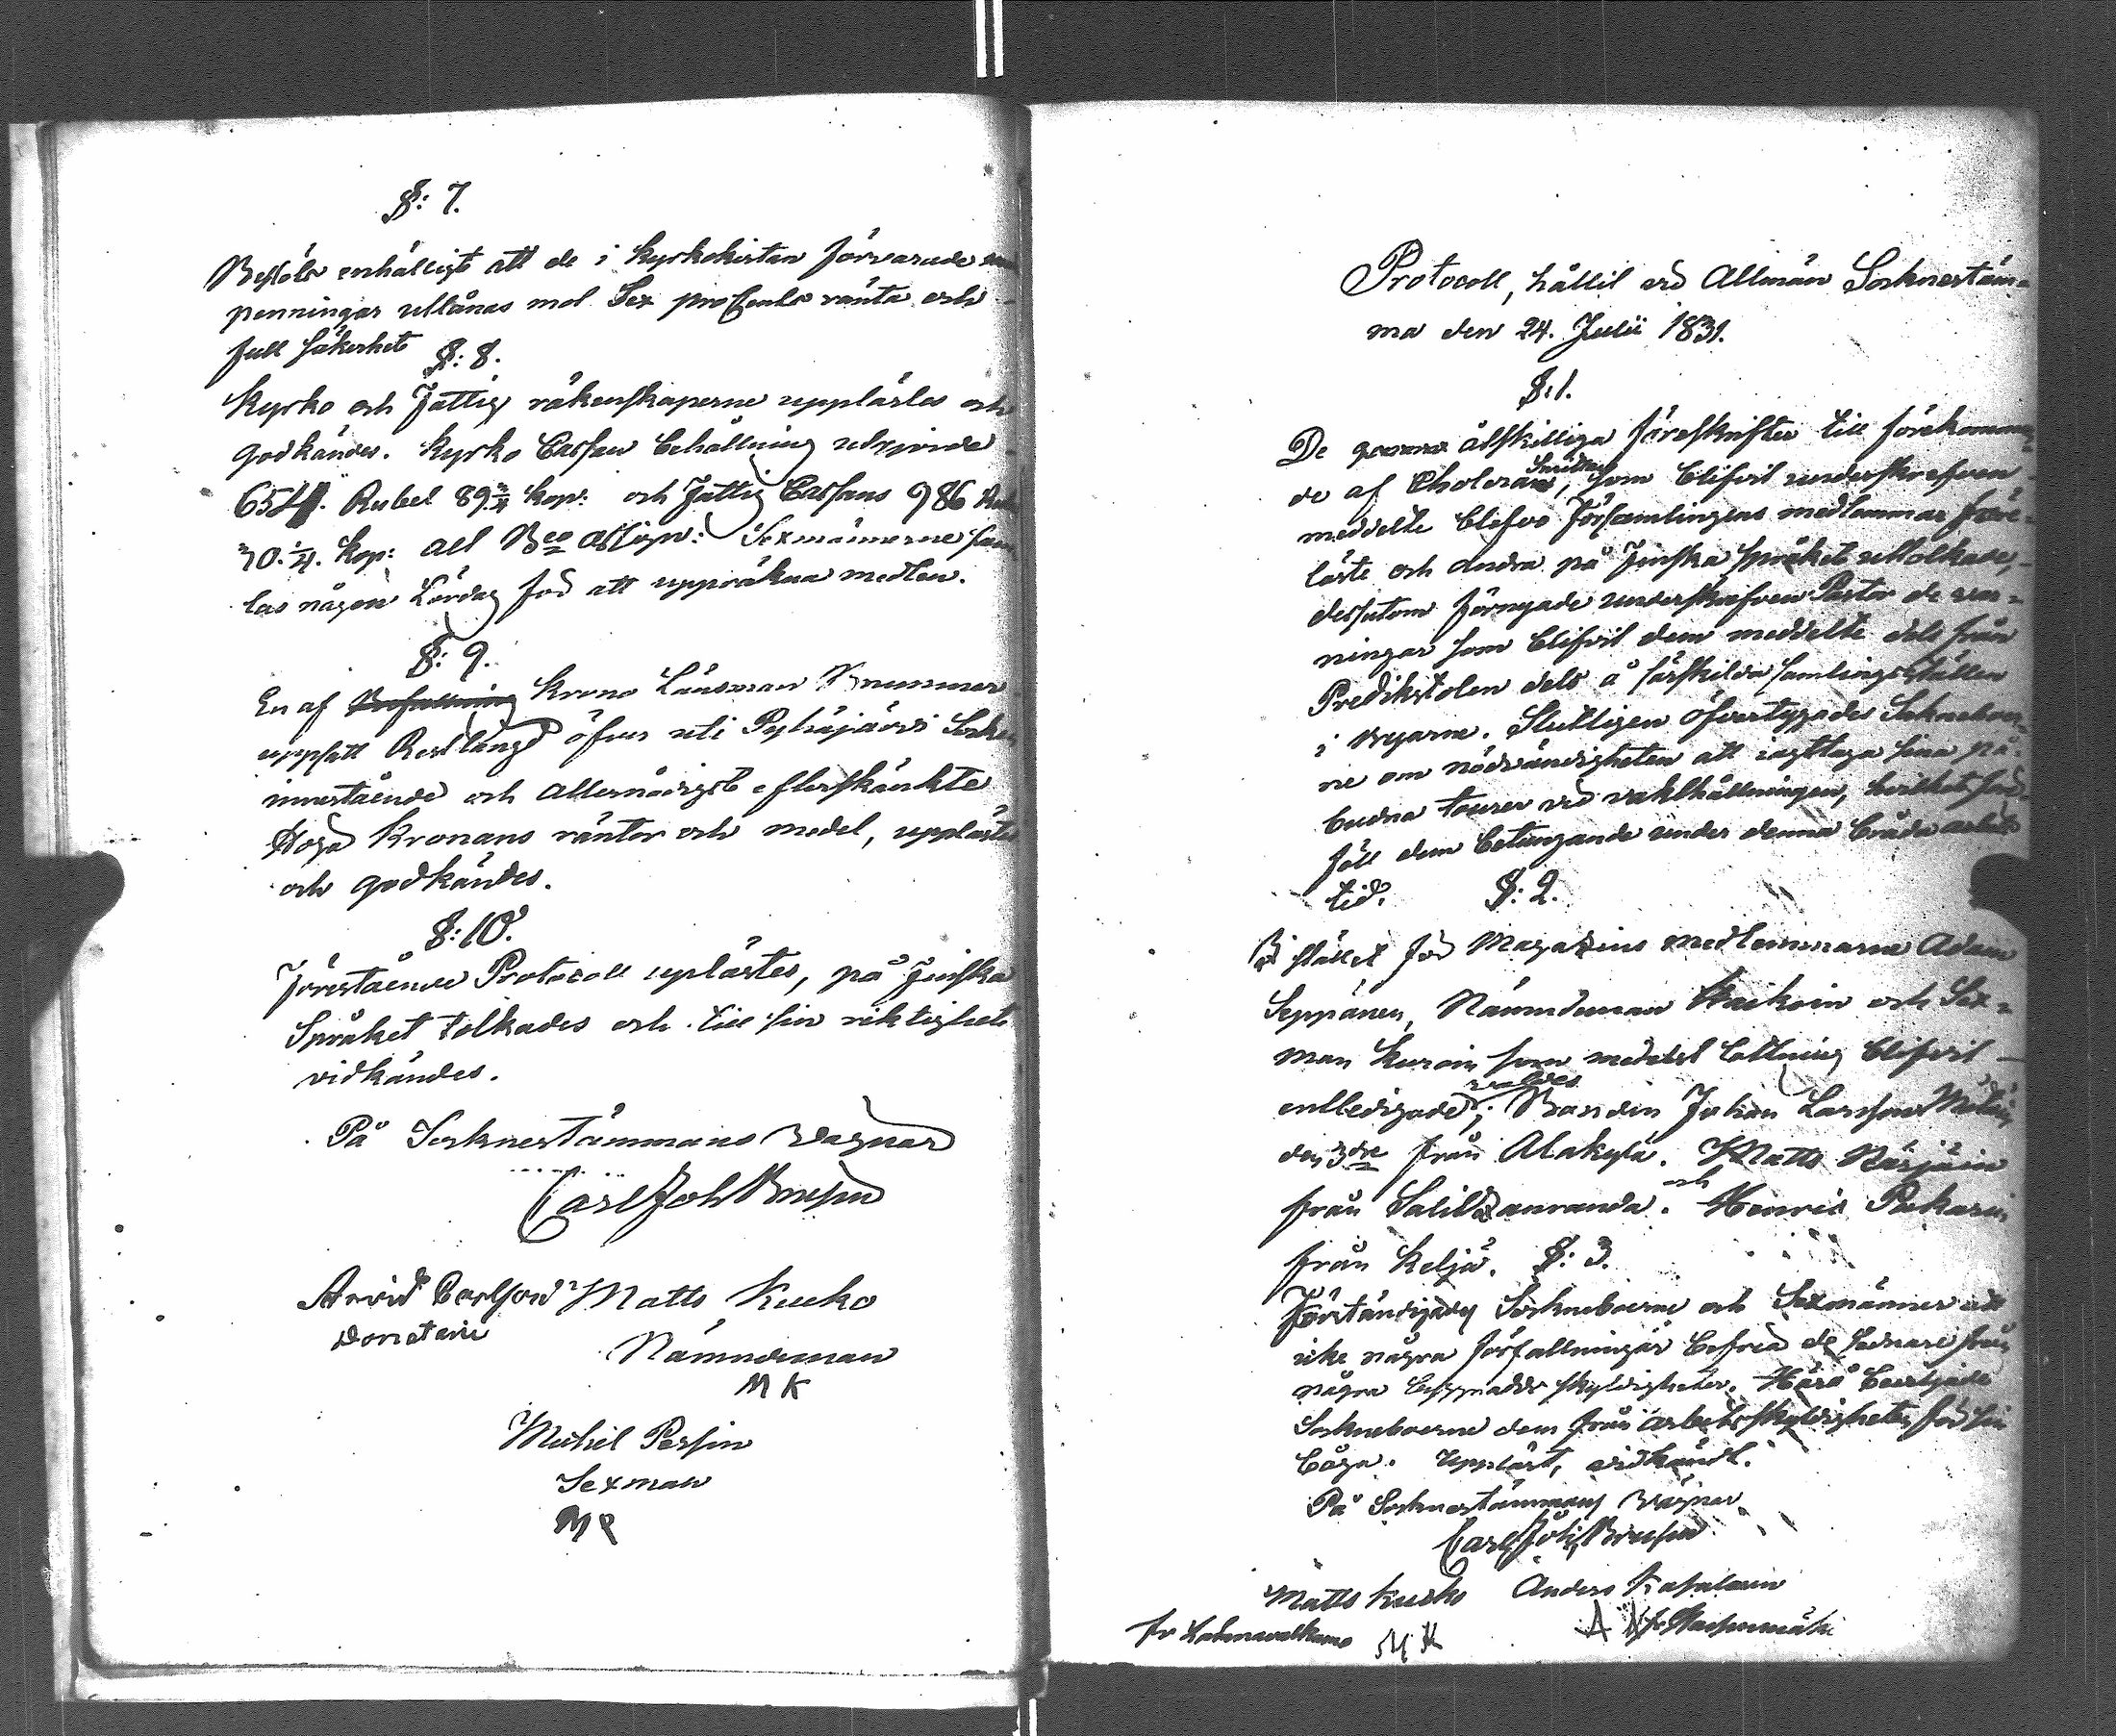 §: 7.
Beslöts enhälligt att de i Kyrkokistan förvarade
penningar utlånas mot Sex proCents ränta och
full säkerhet
§: 8.
Kyrko och Fattig räkenskaperne upplästes och
godkändes. Kyrko Cassan behållning utgjorde
654. Rubel 89 3/4 kop: och Fattig Cassans 986 Rub
30. 1/4. kop: allt Bco Assign: Sexmännerne sam-
las någon Lördag för att uppräkna medlen.
§: 9.
En af Befallning Krono Länsman Brummer
uppsatt Restlängd öfver uti Pyhäjärvi Socken
innestående och allernådigst efterskänkte
Höga Kronans räntor och medel, upplästes
och godkändes.
§: 10.
Förestående Protocoll uplästes, på Finska
Språket tolkades och till sin riktighet
vidkändes.
På Socknestämmans vägnar
Carl Joh Brusin
Arvid Carlson Matts Kucko
Nämndeman
M K
Michel Persin
Sexman
M P
Protocoll, hållit vid Allmän Socknestäm-
ma den 24. Julii 1831.
§: 1.
De åtskilliga föreskrifter till förekomman-
de af Cholera Smittan, som blifvit underskrefven
meddelte blefvo Församlingens medlemmar före-
läste och andra på Finska språket uttolkade,
dessutom förnyade underskrefven Pastor de var-
ningar som blifvit dem meddelte dels från
Predikstolen dels å särskilda samlingsställen
i byarne. Slutligen öfvertygades Sockneboer-
ne om nödvändigheten att iagttaga sina på-
budna tourer vid vakthållningen, hvilket före-
föll dem betungande under denna bråda arbets
tid.
§: 2.
I stället för Magazins medlemmarne Adam
Seppänen, Nämndeman Haikoin och Sex-
man Kuroin som medelst lottning blifvit
entledigade, valdes Bonden Johan Larsson
den 3dje från Alakylä. Matts Närjäin
från Salitsanranda. och Henric Pukarin
från Keljä. §: 3.
Förständigades Sockneboerne och Sexmänner att
icke några förfallningar befria de sednare från
några byggnads skyldigheter. Härå beviljade
Sockneboerne dem från arbetsskyldigheten för sin
båga. Uppläst, vidkändt.
På Socknestämmans vägnar
Carl Joh Brusin
Matts Kucko Anders Kapalain
fr Lahnavalkama M K A K fr